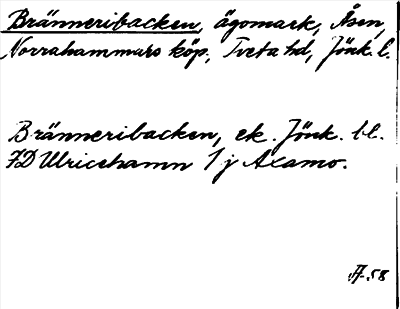 Bränneribacken, ägomark, Åsen,
Norrahammars köp., Tveta hd, Jönk. l.
Bränneribacken, ek. Jönk. bl.
7D Ulricehamn 1 j Axamo.
A-58